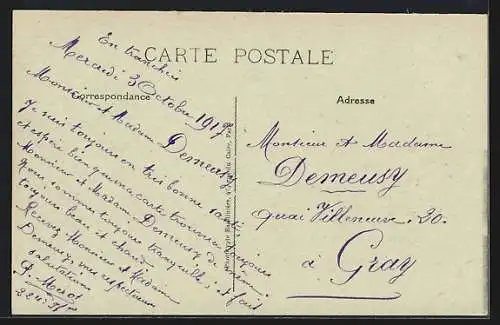 CARTE POSTALE
Correspondance
Adresse
En tranchées
Mercredi 3 Octobre 1917
Monsieur et Madame Demeusy
Je suis toujours en très bonne santé
et espère bien que ma carte trouvera
Monsieur et Madame Demeusy de même.
Nous sommes toujours tranquille il fait
toujours beau et chaud.
Recevez Monsieur et Madame
Demeusy mes respectueuses
salutations
Monsieur et Madame
Demeusy
Quai Villeneuve. 20.
à Gray